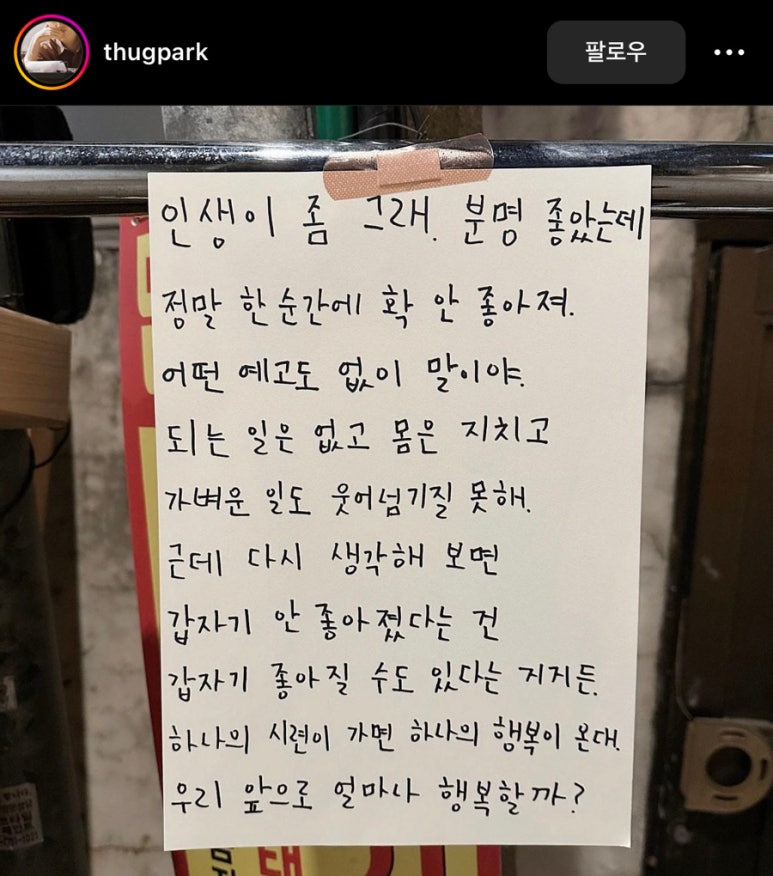 thugpark
팔로우
인생이 좀 그래. 분명 좋았는데
정말 한 순간에 확 안 좋아져.
어떤 예고도 없이 말이야.
되는 일은 없고 몸은 지치고
가벼운 일도 웃어넘기질 못해.
근데 다시 생각해 보면
갑자기 안 좋아졌다는 건
갑자기 좋아질 수도 있다는 거거든.
하나의 시련이 가면 하나의 행복이 온대.
우리 앞으로 얼마나 행복할까?